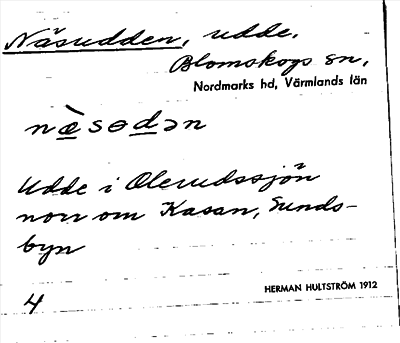 Näsudden, udde,
Blomskogs sn,
Nordmarks hd, Värmlands län
næ̀sɵdən
Udde i Olerudssjön
norr om Kasan, Sunds-
byn
4
HERMAN HULTSTRÖM 1912